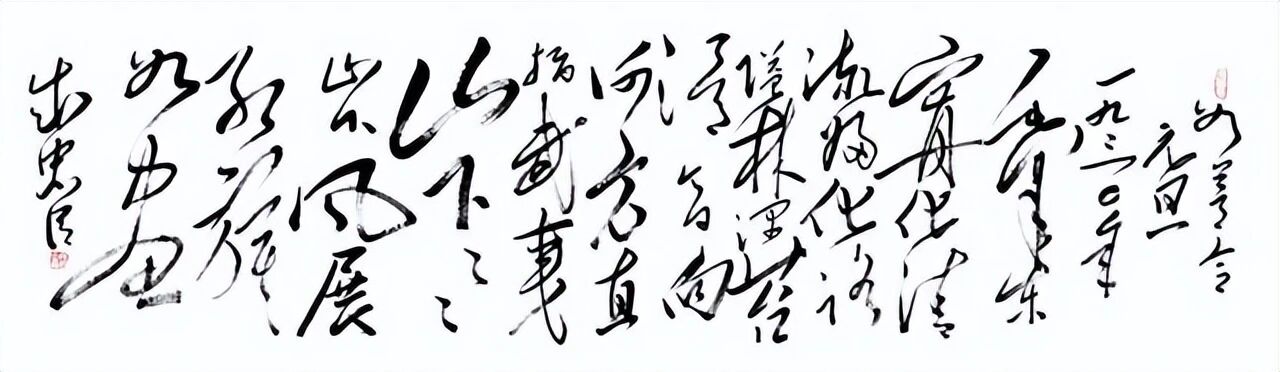 如梦令
元旦
一九三〇年
宁化清
流归化路
隘林深苔
滑今日向
何方直
指武夷
山下々々
山下风展
红旗
如画
忠臣